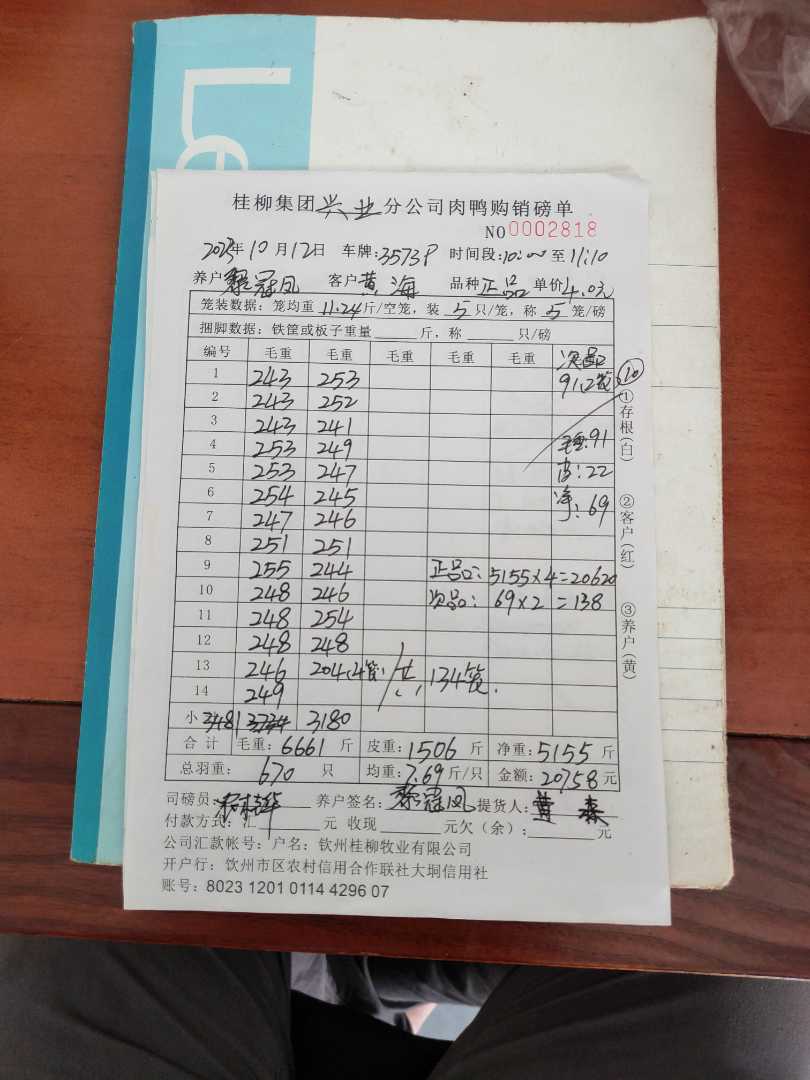 Le
桂柳集团兴业分公司肉鸭购销磅单
NO 0002818
2023年10月12日 车牌:3573P 时间段:10:00至11:10
养户 黎冠凤 客户 黄海 品种 正品 单价 4.0元
笼装数据:笼均重 11.24 斤/空笼,装 5 只/笼,称 5 笼/磅
捆脚数据:铁筐或板子重量____斤,称____只/磅
编号 毛重 毛重 毛重 毛重 毛重 次品
1 243 253 91,2笼 10
2 243 252
3 243 241
4 253 249 毛:91
5 253 247 皮:22
6 254 245 净:69
7 247 246
8 251 251
9 255 244 正品:5155×4=20620
10 248 246 次品:69×2=138
11 248 254
12 248 248
13 246 204(4笼) 共134笼.
14 249
小 3481 3180
合计 毛重:6661斤 皮重:1506斤 净重:5155斤
总羽重:670只 均重:7.69斤/只 金额:20758元
司磅员: 养户签名:黎冠凤 提货人:黄森
付款方式:汇____元 收现____元欠(余):____元
公司汇款帐号:户名:钦州桂柳牧业有限公司
开户行:钦州市区农村信用合作联社大垌信用社
账号:8023 1201 0114 4296 07
①存根(白)
②客户(红)
③养户(黄)